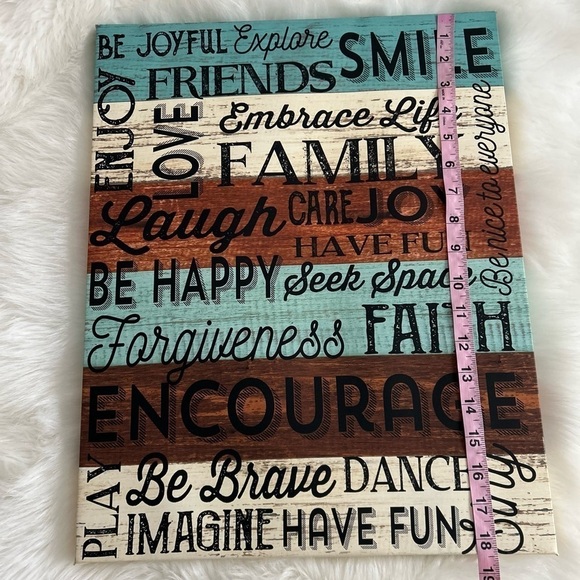 BE JOYFUL Explore SMILE
ENJOY
FRIENDS
LOVE
Embrace Life
FAMILY
Be nice to everyone
Laugh CARE JOY
HAVE FUN
BE HAPPY Seek Space
Forgiveness FAITH
ENCOURAGE
PLAY
Be Brave DANCE
IMAGINE HAVE FUN
1
2
3
4
5
6
7
8
9
10
11
12
13
14
15
16
17
18